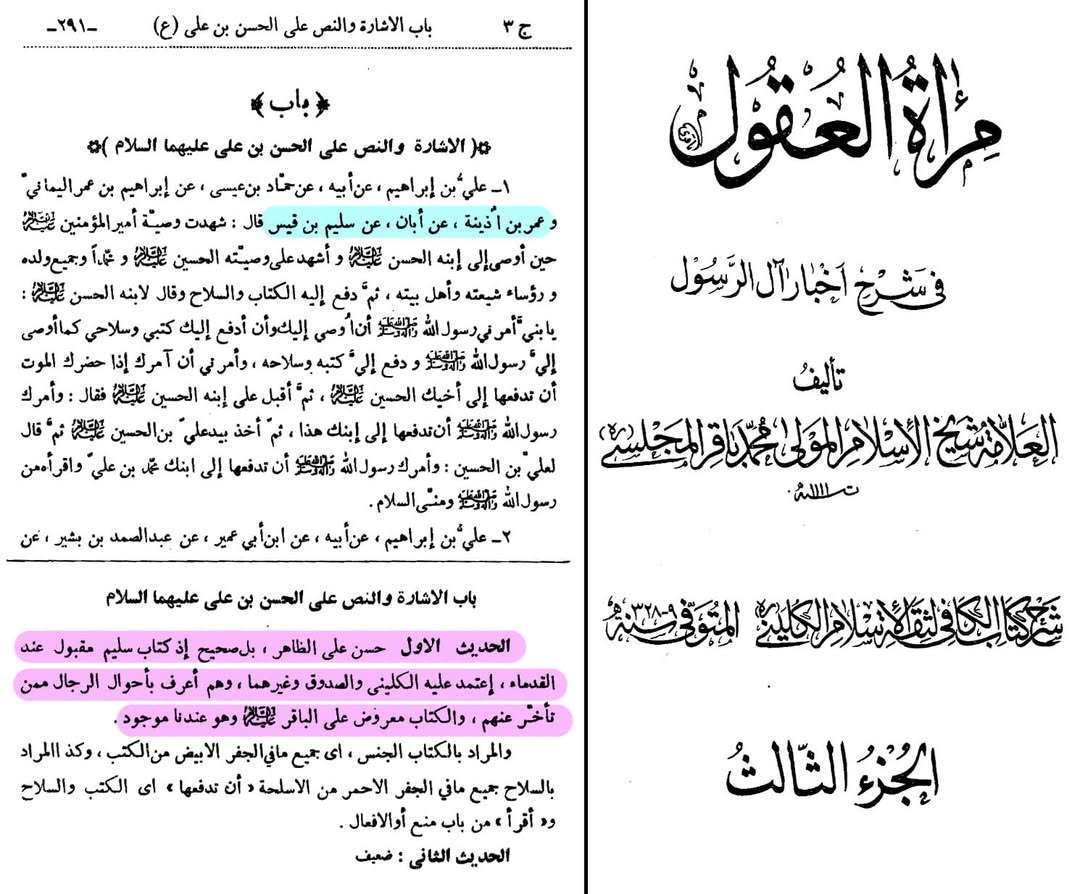 ج ٣ باب الاشارة والنص على الحسن بن على (ع) -٢٩١-
﴿ باب ﴾
❊( الاشارة والنص على الحسن بن على عليهما السلام )❊
١ـ عليُّ بن إبراهيم ، عن أبيه ، عن حمّاد بن عيسى ، عن إبراهيم بن عمر اليماني ّ
و عمر بن اُذينة ، عن أبان ، عن سليم بن قيس قال : شهدت وصيّة أمير المؤمنين عليه السلام
حين أوصى إلى إبنه الحسن عليه السلام و أشهد على وصيّته الحسين عليه السلام و محمّداً وجميع ولده
و رؤساء شيعته وأهل بيته ، ثمَّ دفع إليه الكتاب والسلاح وقال لابنه الحسن عليه السلام :
يا بنيَّ أمرني رسول الله صلى الله عليه وآله وسلم أن اُوصي إليك وأن أدفع إليك كتبي وسلاحي كما أوصى
إليَّ رسول الله صلى الله عليه وآله وسلم و دفع إليَّ كتبه وسلاحه ، وأمرني أن آمرك إذا حضرك الموت
أن تدفعها إلى أخيك الحسين عليه السلام ، ثمَّ أقبل على إبنه الحسين عليه السلام فقال : وأمرك
رسول الله صلى الله عليه وآله وسلم أن تدفعها إلى إبنك هذا ، ثمّ أخذ بيد عليّ بن الحسين عليه السلام ثمَّ قال
لعليّ بن الحسين : وأمرك رسول الله صلى الله عليه وآله وسلم أن تدفعها إلى ابنك محمّد بن عليّ واقرأه من
رسول الله صلى الله عليه وآله وسلم ومنّي السلام .
٢ـ عليُّ بن إبراهيم ، عن أبيه ، عن ابن أبي عمير ، عن عبدالصمد بن بشير ، عن
باب الاشارة والنص على الحسن بن على عليهما السلام
الحديث الاول حسن على الظاهر ، بل صحيح إذ كتاب سليم مقبول عند
القدماء ، إعتمد عليه الكلينى والصدوق وغيرهما ، وهم أعرف بأحوال الرجال ممن
تأخّر عنهم ، والكتاب معروض على الباقر عليه السلام وهو عندنا موجود .
والمراد بالكتاب الجنس ، اى جميع ما في الجفر الابيض من الكتب ، وكذا المراد
بالسلاح جميع مافي الجفر الاحمر من الاسلحة « أن تدفعها » اى الكتب والسلاح
و« أقرأ » من باب منع أو الافعال .
الحديث الثانى : ضعيف
مِرآةُ العُقُول
فى شَرْحِ اَخبار آل الرَّسُول
تأليفُ
العلّامة شيخ الإسلام المولى محمّد باقر المجلسى
شرح كتاب الكافى لثقة الإسلام الكلينى المتوفى سنة ٩-٣٢٨ ه
الجُزءُ الثّالثُ